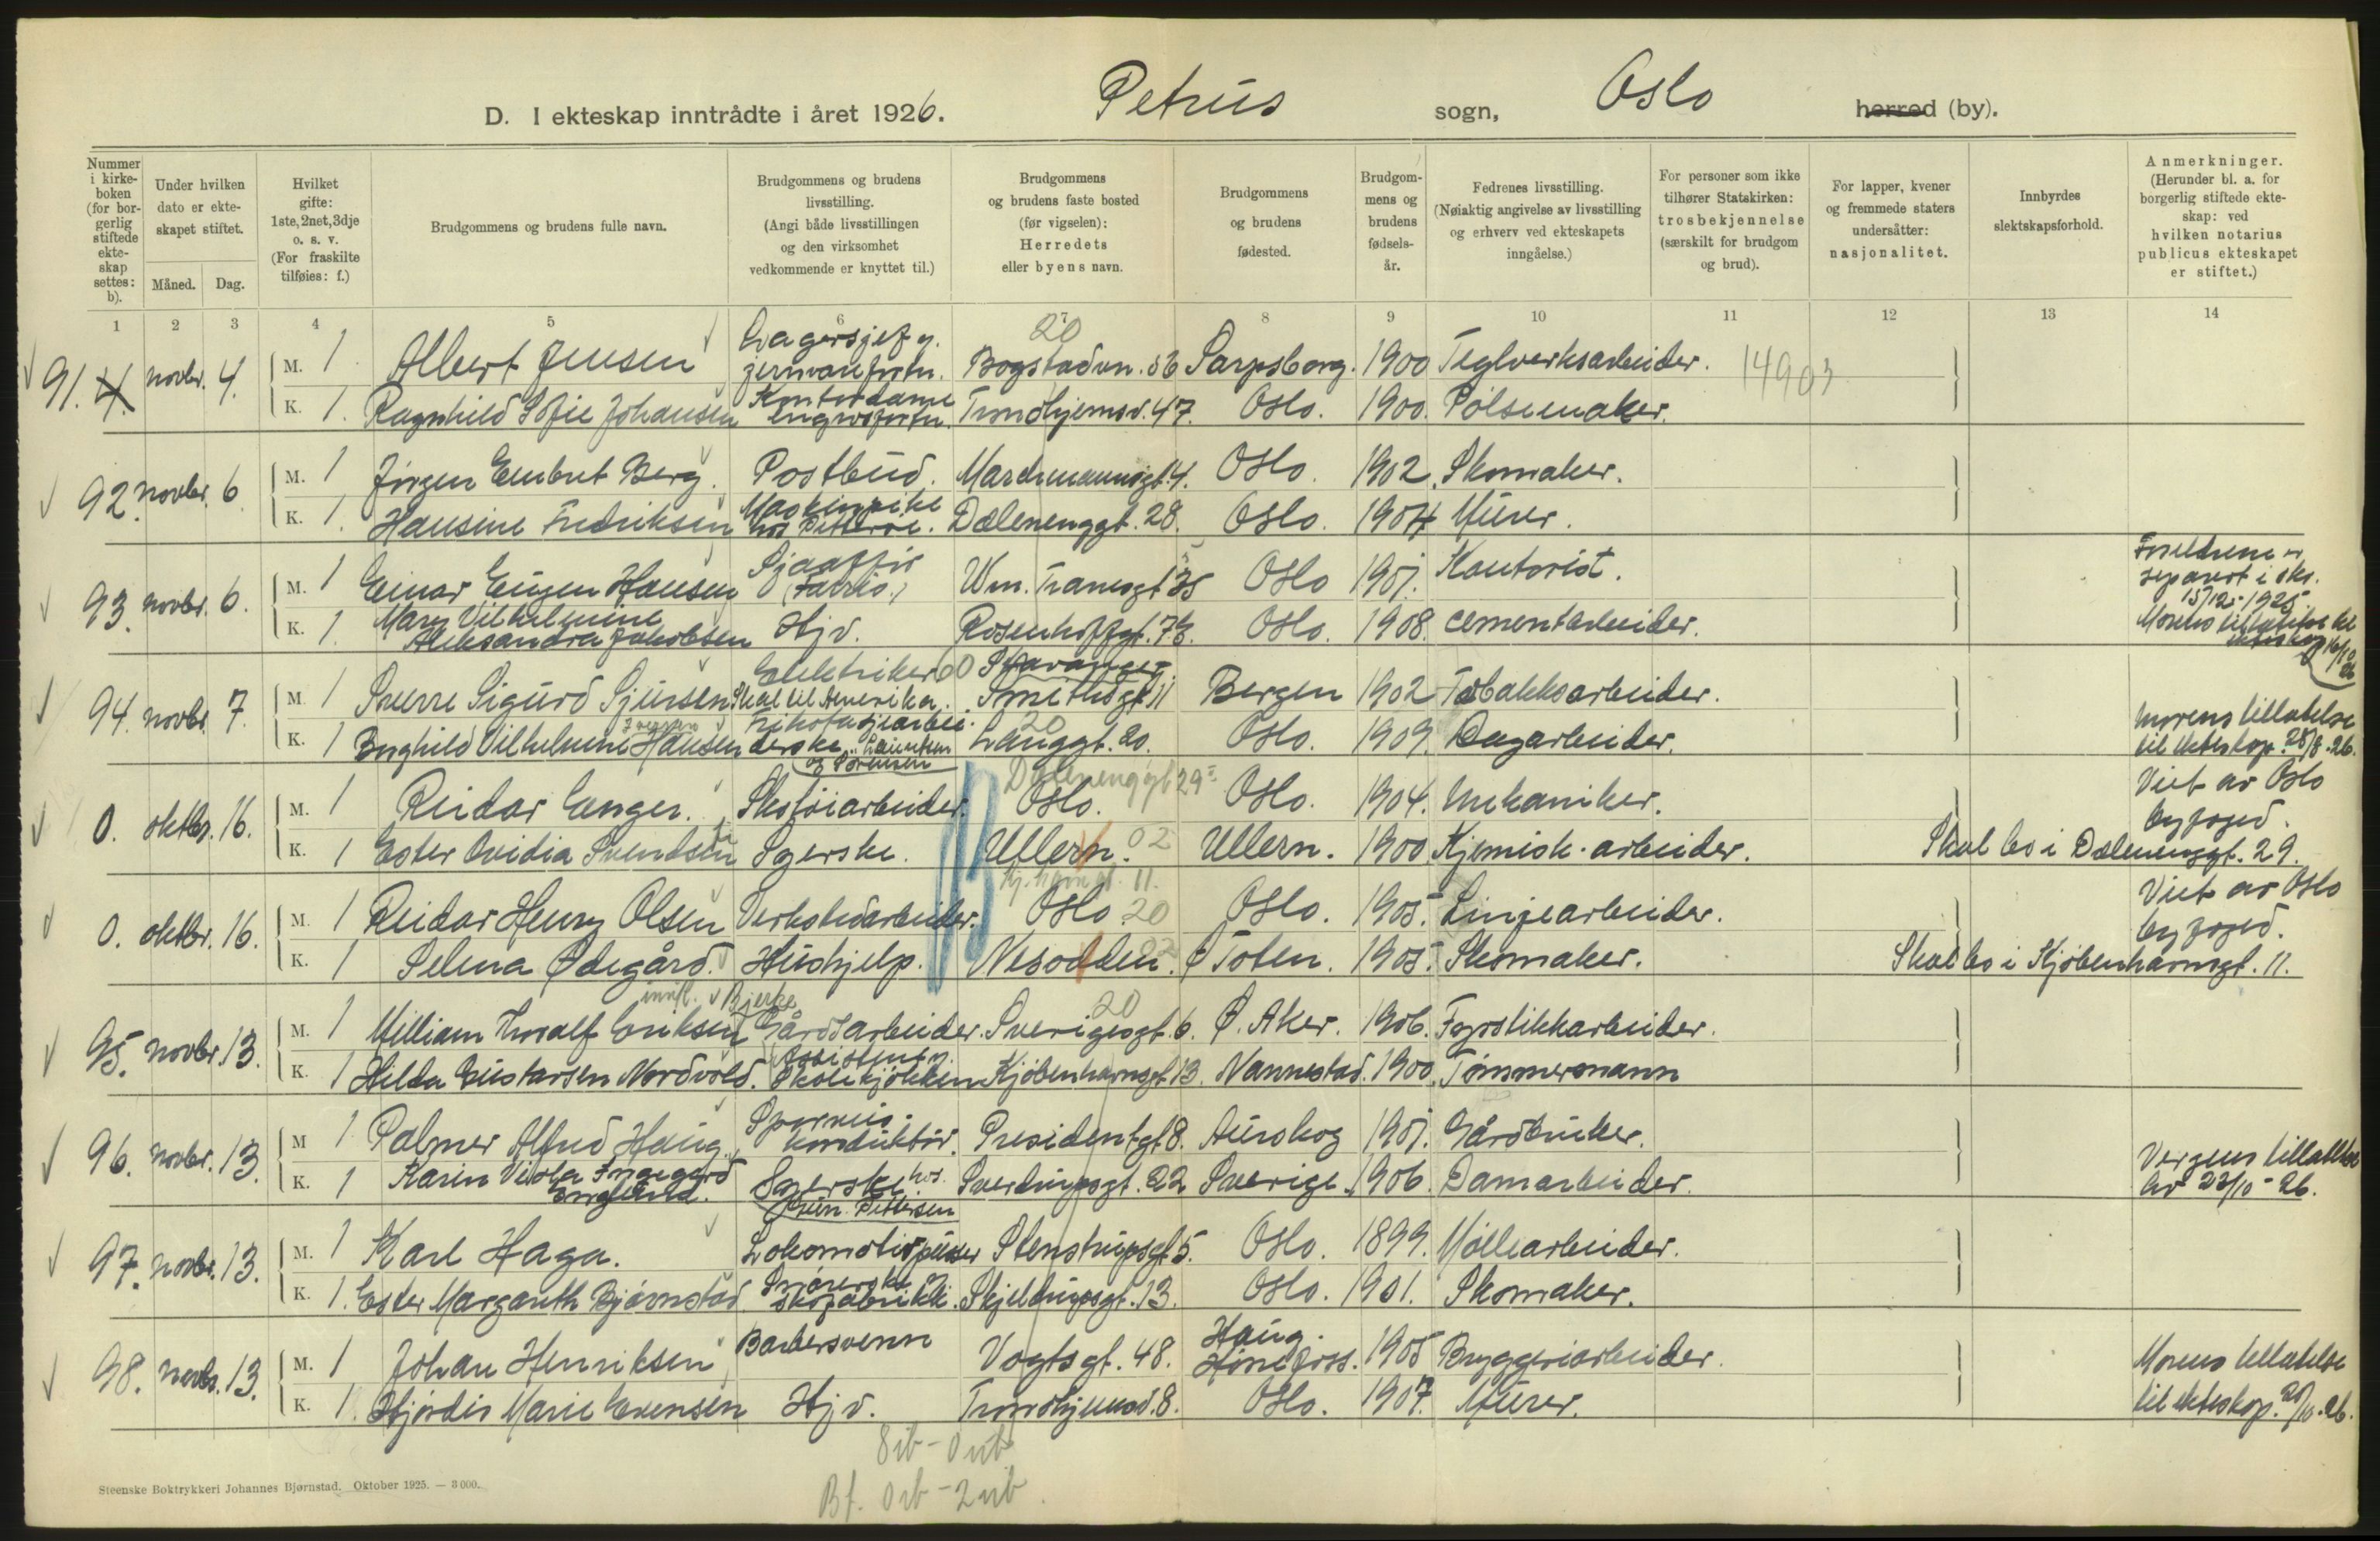 D. I ekteskap inntrådte i året 1926. Petrus sogn, Oslo herred (by).
Nummer i kirkeboken (for borgerlig stiftede ekteskap settes: b).
Under hvilken dato er ekteskapet stiftet.
Måned. Dag.
Hvilket gifte: 1ste, 2net, 3dje o. s. v. (For fraskilte tilføies: f.)
Brudgommens og brudens fulle navn.
Brudgommens og brudens livsstilling. (Angi både livsstillingen og den virksomhet vedkommende er knyttet til.)
Brudgommens og brudens faste bosted (før vigselen): Herredets eller byens navn.
Brudgommens og brudens fødested.
Brudgommens og brudens fødselsår.
Fedrenes livsstilling. (Nøiaktig angivelse av livsstilling og erhverv ved ekteskapets inngåelse.)
For personer som ikke tilhører Statskirken: trosbekjennelse (særskilt for brudgom og brud).
For lapper, kvener og fremmede staters undersåtter: nasjonalitet.
Innbyrdes slektskapsforhold.
Anmerkninger. (Herunder bl. a. for borgerlig stiftede ekteskap: ved hvilken notarius publicus ekteskapet er stiftet.)
1 2 3 4 5 6 7 8 9 10 11 12 13 14
20
91. novbr. 4. M. 1 Albert Jensen Lagersjef i jernvareforretn. Bogstadvn. 56 Sarpsborg. 1900 Teglverksarbeider. 14903
K. 1. Ragnhild Sofie Johansen Kontordame engrosforretn. Trondhjemsv. 47. Oslo. 1900. Pølsemaker.
92. novbr. 6. M. 1 Jørgen Embret Berg. Postbud. Marchmannsgt. 4. Oslo. 1902. Skomaker.
K. 1. Hansine Fredriksen Dælenenggt. 28. Oslo. 1904 Murer.
93. novbr. 6. M. 1 Einar Eugen Hansen Sjåffør Wm. Tranesgt. 35 Oslo 1901. Kontorist.
K. 1. Mary Vilhelmine Aleksandra Jakobsen Hjv. Rosenhoffgt. 7 Oslo. 1908. cementarbeider.
Foreldrene er separert i
15/12-1925
Morens tillatelse til ekteskap
94. novbr. 7. M. 1 Sverre Sigurd Sjursen Elektriker Skal til Amerika. Stavanger Smithsgt. 11 Bergen 1902 Tobakksarbeider.
K. 1 Borghild Vilhelmine Hansen Trikotasjearbeiderske Lauritzen og Sørensen 20 Langgt. 20. Oslo. 1909. Dagarbeider.
Morens tillatelse til ekteskap. 28/8-26.
Dælenenggt 29
0. oktbr. 16. M. 1 Reidar Enger. Skotøiarbeider. Oslo. Oslo. 1904. Mekaniker. Viet av Oslo byfoged.
K. 1 Ester Ovidia Svendsen Syerske. Ullern. 02 Ullern. 1900 Kjemisk. arbeider. Skal bo i Dælenenggt. 29.
Kj.havngt. 11.
0. oktbr. 16. M. 1 Reidar Henry Olsen Verkstedarbeider. Oslo. 20 Oslo. 1905. Linjearbeider. Viet av Oslo byfoged.
K. 1 Selma Ødegård. Hushjelp. Nesodden. 02 Ø Toten. 1905. Skomaker. Skal bo i Kjøbenhavnsgt. 11.
innfl. Bjerke
20
95. novbr. 13. M. 1 William Thoralf Eriksen Gårdsarbeider. Sverigesgt. 6. Ø. Aker. 1906. Fyrstikkarbeider.
K. 1 Hilda Gustavsen Nordvold. Assistent v. Skolekjøkken Kjøbenhavnsgt. 13. Nannestad. 1900. Tømmermann
96. novbr. 13. M 1 Palmer Alfred Haug. Sporveis. konduktør. Presidentgt. 8. Aurskog 1901. Gårdbruker.
K. 1 Karin Viola England. Syerske hos. Pettersen Sverdrupsgt. 22 Sverige. 1906. Damarbeider.
Vergens tillatelse av 23/10-26.
97. novbr. 13. M. 1 Karl Haga. Lokomotivpusser Stenstrupsgt. 5. Oslo. 1899. Møllearbeider.
K. 1. Ester Margareth Bjørnstad. skofabrikk. Skjeldrupsgt. 13. Oslo. 1901. Skomaker.
98. novbr. 13. M. 1 Johan Henriksen Barbersvenn Vogtsgt. 48. Haug. Hønefoss. 1905 Bryggeriarbeider.
K. 1. Hjørdis Marie Evensen Hjv. Trondhjemsv. 8. Oslo. 1907. Murer.
Morens tillatelse til ekteskap. 20/10-26.
8ib - 0uib
Bf. 0ib - 2uib.
Steenske Boktrykkeri Johannes Bjørnstad. Oktober 1925. — 3 000.